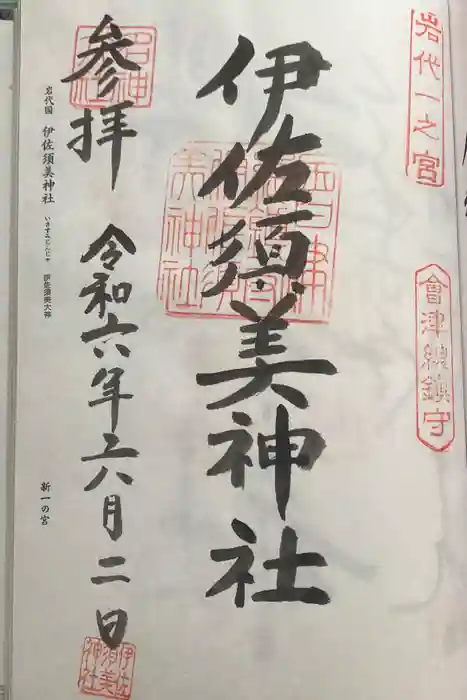 岩代一之宮
會津総鎮守
伊佐須美神社
参拝
令和六年六月二日
岩代国 伊佐須美神社 いさすみじんじゃ 伊佐須美大神
新一の宮
伊佐須美神社